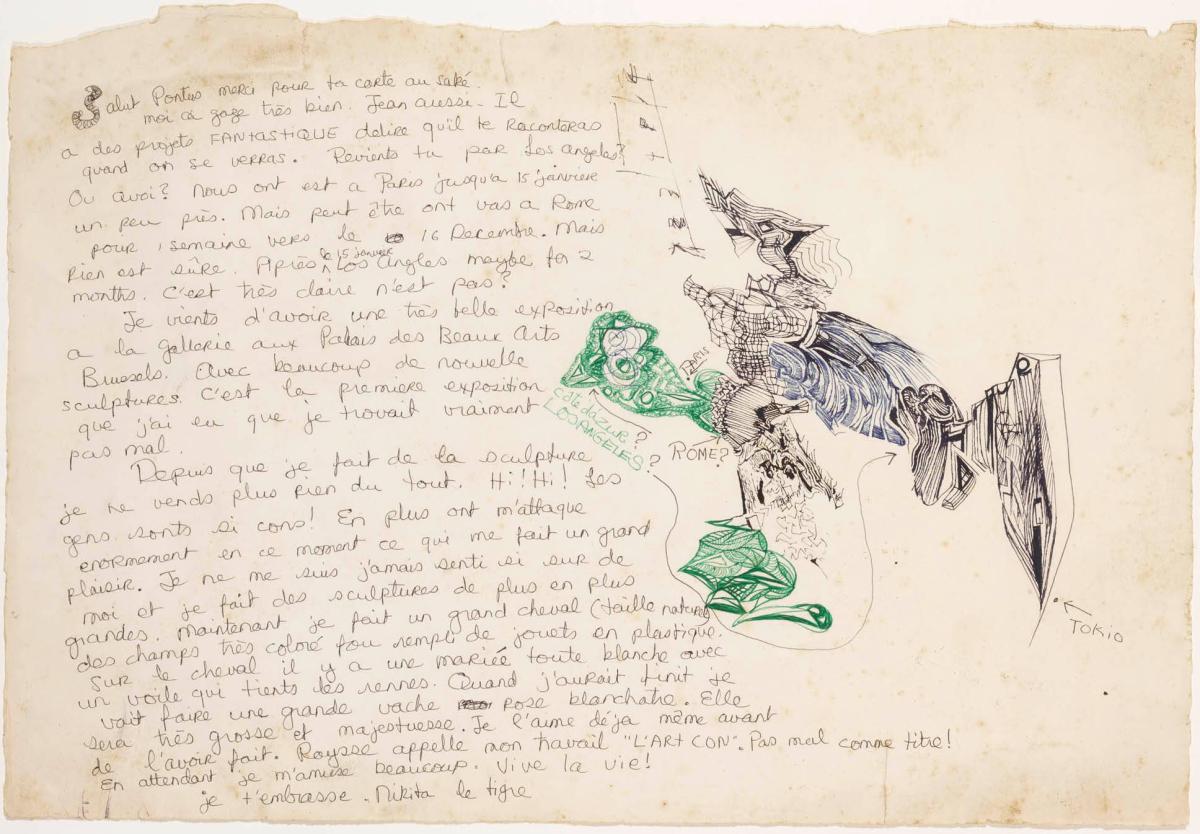 Salut Pontus merci pour ta carte au saké.
moi ça gaze très bien. Jean aussi. Il
a des projets FANTASTIQUE delire qu'il te Raconteras
quand on se verras. Revients tu par Los angeles?
Ou quoi? Nous ont est a Paris jusqu'a 15 janvière
un peu près. Mais peut être ont vas a Rome
pour 1 semaine vers le 16 Decembre. Mais
rien est sûre. Après le 15 janvier Los Angles maybe for 2
months. C'est très claire n'est pas?
Je vients d'avoir une très belle exposition
a la gallerie aux Palais des Beaux Arts
Brussels. Avec beaucoup de nouvelle
sculptures. C'est la premiere exposition
que j'ai eu que je trovait vraiment
pas mal.
Depuis que je fait de la sculpture
je ne vends plus rien du tout. Hi! Hi! Les
gens sonts si cons! En plus ont m'attaque
enormement en ce moment ce qui me fait un grand
plaisir. Je ne me suis j'amais senti si sur de
moi et je fait des sculptures de plus en plus
grandes. Maintenant je fait un grand cheval (taille naturel)
des champs très coloré fou rempli de jouets en plastique.
Sur le cheval il y a une mariée toute blanche avec
un voile qui tients les rennes. Quand j'aurait finit je
vait faire une grande vache rose blanchatre. Elle
sera très grosse et majestuesse. Je l'aime déja même avant
de l'avoir fait. Raysse appelle mon travail "L'ART CON". Pas mal comme titre!
En attendant je m'amuse beaucoup. Vive la vie!
je t'embrasse. Nikita le tigre
PARIS
côte dazur?
LOSANGELES?
ROME?
TOKIO